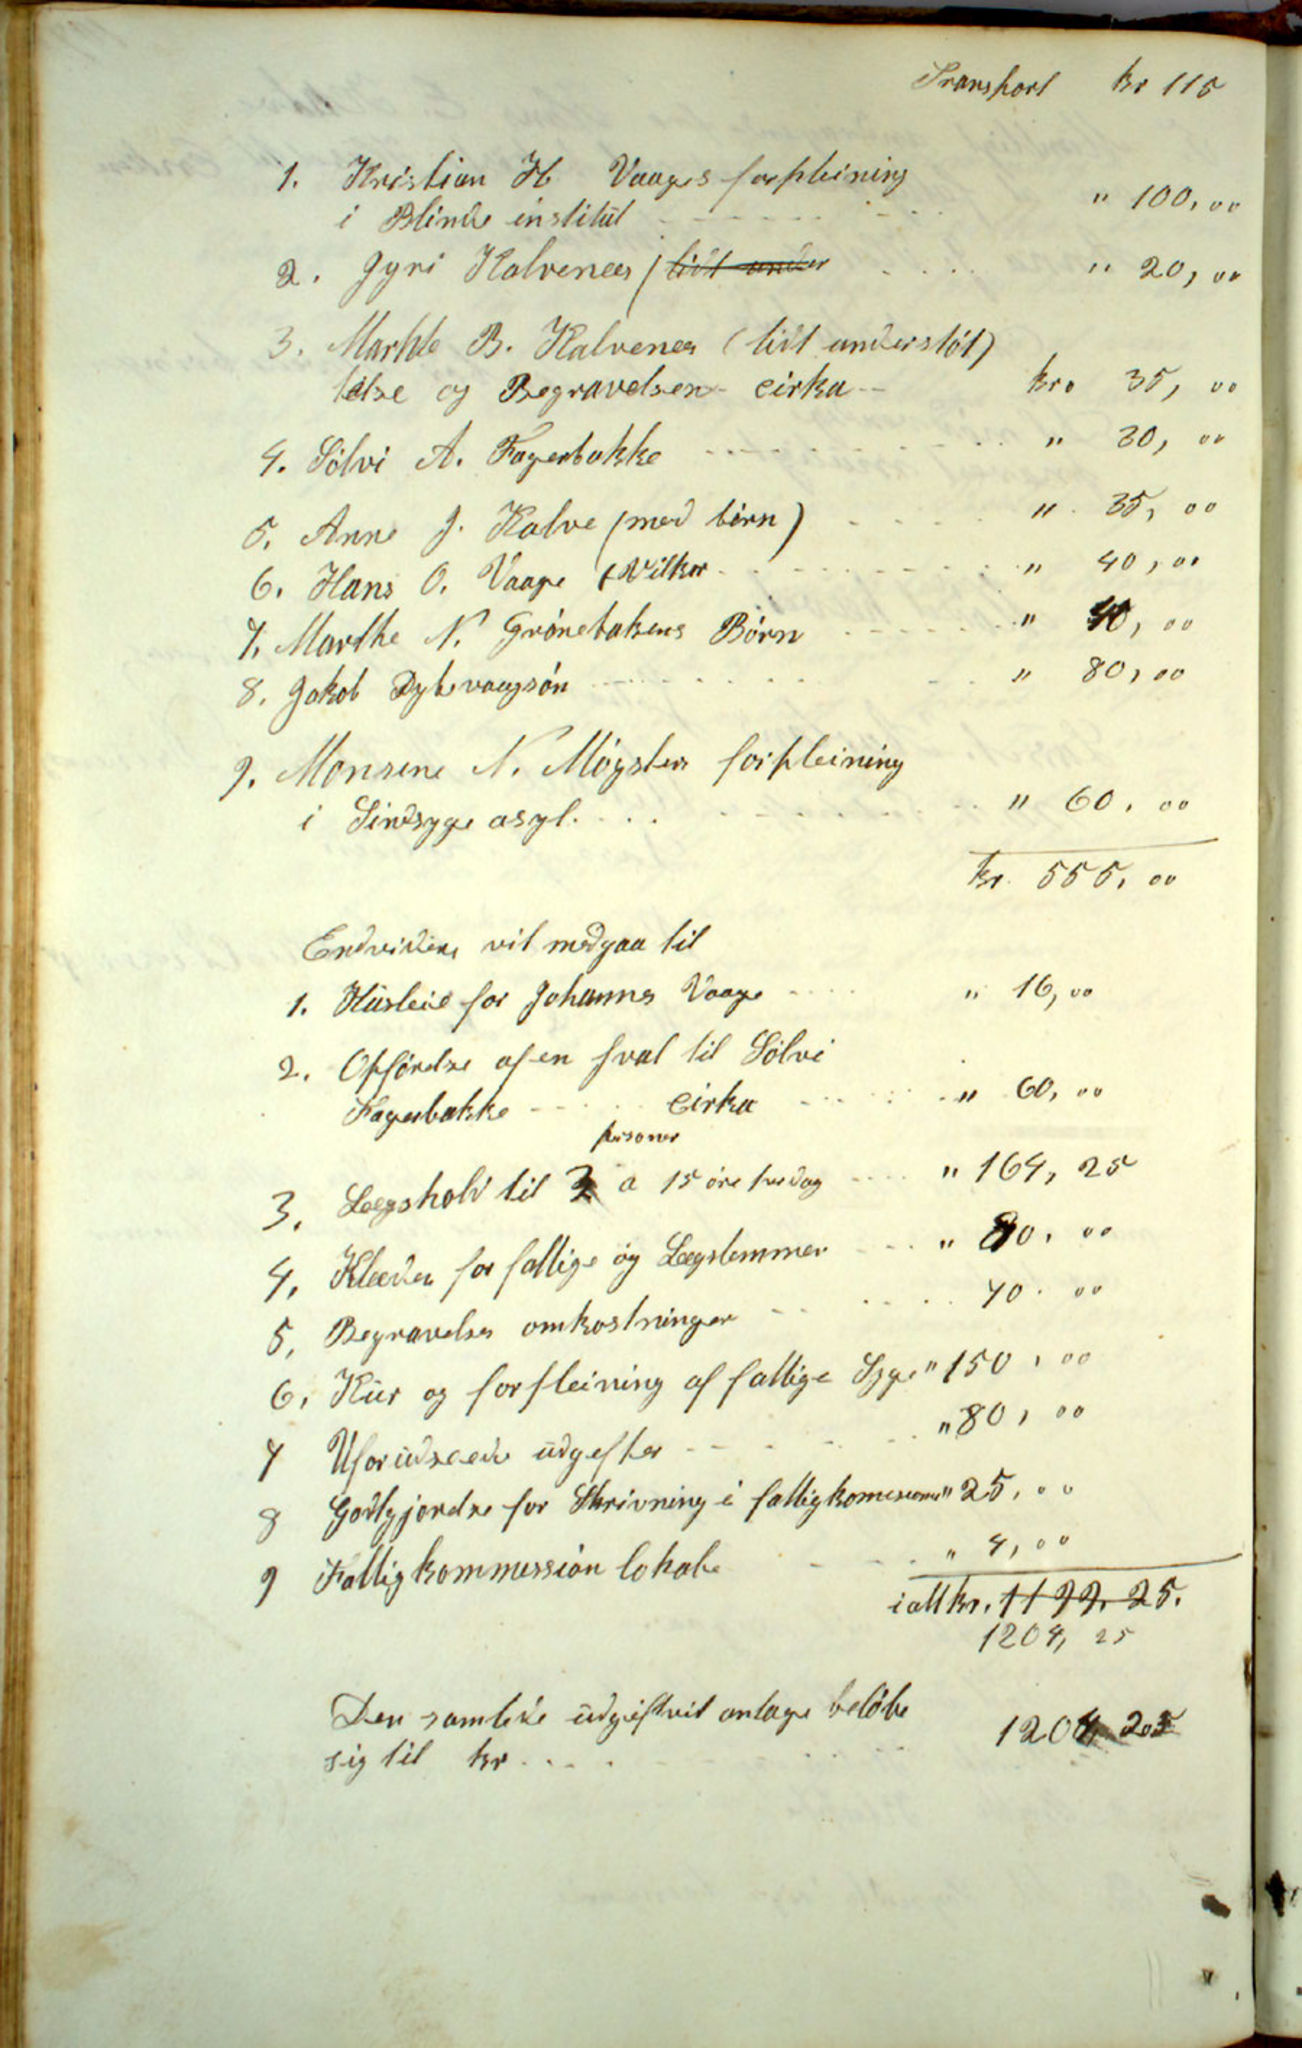 Transport kr 115
1. Kristian H Vaages forpleining
i Blinde institut " 100,00
2. Gyri Kalvenes (lidt under " 20,00
3. Marthe B. Kalvenes (lidt understøt)
telse og Begravelsen cirka kr. 35,00
4. Sølvi A. Fagerbakke " 30,00
5. Anne J. Kalve (med børn) " 35,00
6. Hans O. Vaage (Vilkor " 40,00
7. Marthe N. Grønebakens Børn " 40,00
8. Jakob Dybevaagsøn " 80,00
9. Monsine N. Møgsters forpleining
i Sindsyge asyl. " 60,00
kr. 555,00
Endvidere vil medgaa til
1. Husleie for Johannes Vaage " 16,00
2. Opførelse af en sval til Sølvi
Fagerbakke cirka " 60,00
personer
3. Lægshold til 3 a 15 øre pr dag " 164,25
4. Klæder for fattige og Lægslemmer " 80,00
5, Begravelses omkostninger 70.00
6. Kur og forpleining af fattige Syge " 150,00
7 Uforudseede udgifter " 80,00
8 Godtgjørelse for Skrivning i fattigkomissionen " 25,00
9 Fattigkommission lokale " 4,00
ialt kr. 1199.25.
1204, 25
Den samlede udgift vil antage beløbe
sig til kr 1204, 25